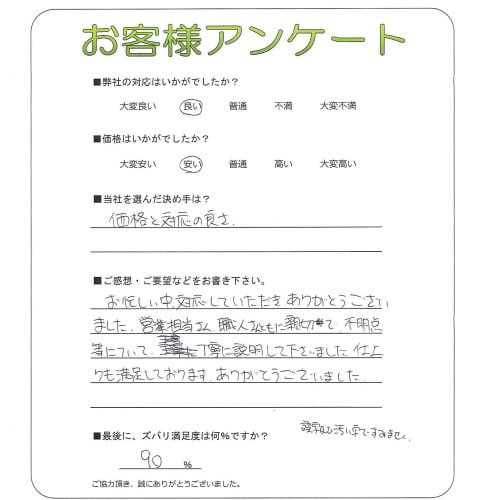 お客様アンケート
■弊社の対応はいかがでしたか?
大変良い 良い 普通 不満 大変不満
■価格はいかがでしたか?
大変安い 安い 普通 高い 大変高い
■当社を選んだ決め手は?
価格と対応の良さ.
■ご感想・ご要望などをお書き下さい。
お忙しい中、対応していただきありがとうござい
ました。営業担当さん、職人さんともに親切で、不明点
等について、丁寧に説明して下さいました 仕上
りも満足しております。ありがとうございました.
■最後に、ズバリ満足度は何%ですか?
誤字脱 汚い字ですみません。
90 %
ご協力頂き、誠にありがとうございました。